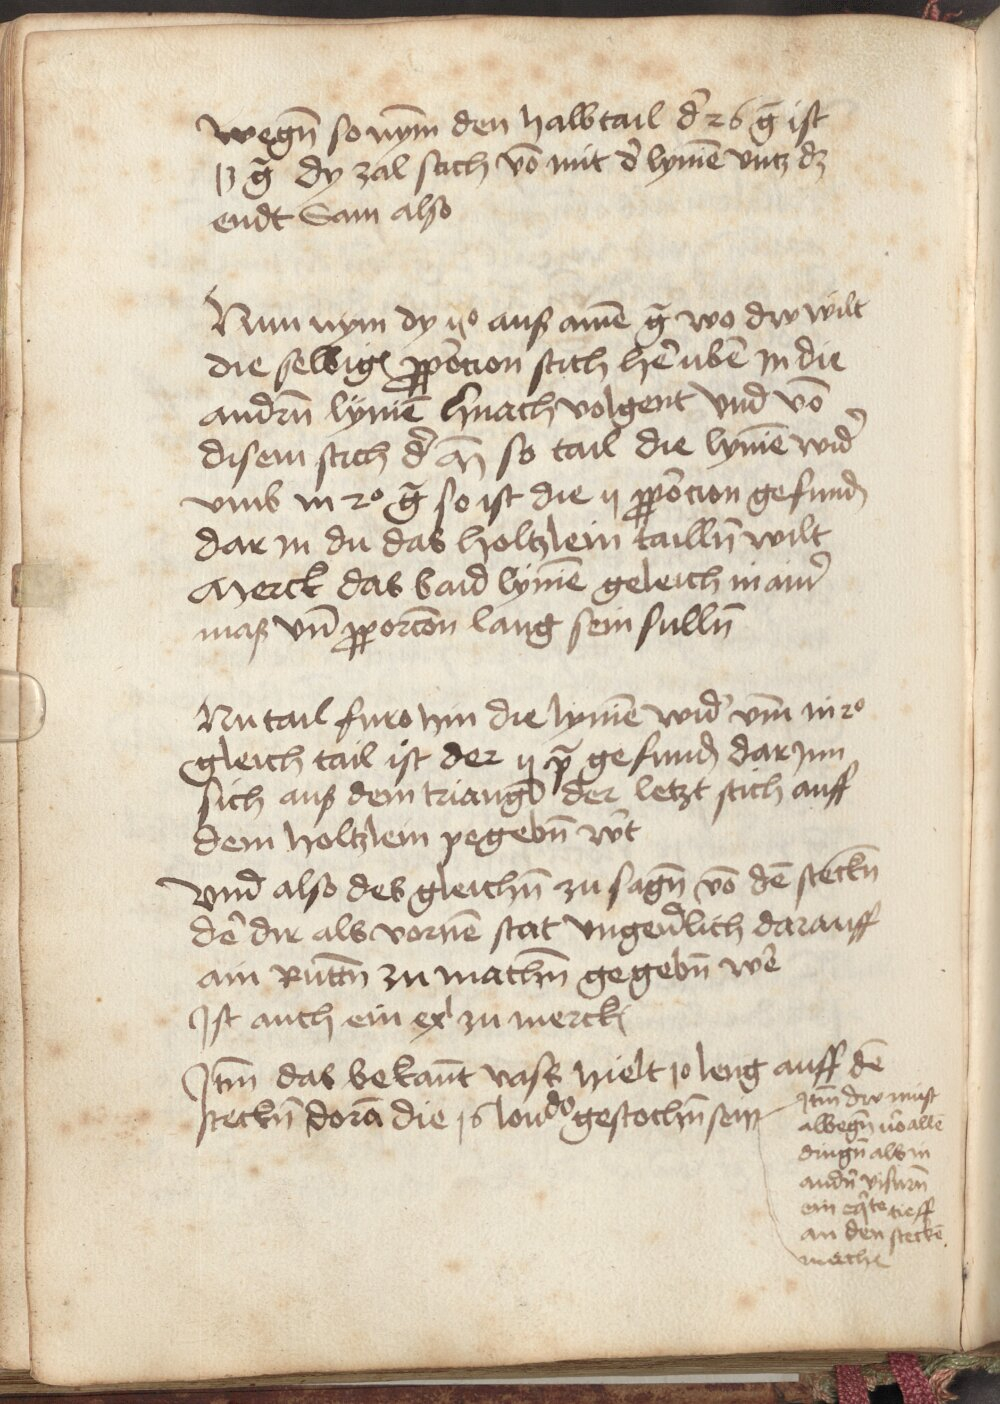 wegñ so nym̄ den halbtail d' 26 g̃ ist
13 g̃ dy zal stich vō mit d' lynie vntz dz
endt Sam also
Nun nym dy 110 auß ainē g̃ wo dw wilt
die selbigē p̱porcion stich hēr übē In die
andrñ lyniē hnach volgent vnd vō
disem stich d' so tail die lyniē wid'
vmb in 20 g̃ so ist die ij p̱porcion gefundē
dar in du das holtzlein taillñ wilt
Merck das baid lyniē geleich in ainer
maß vñ p̱porcōn lang sein sullñ
Nu tail furohin die lyniē wid' vm̄ in 20
gleich tail ist der ij p̃ gefundē dar Inn
sich auß dem triangl der letzt stich auff
dem holtzlein pegebñ w't
vnd also des gleichñ zu sagñ vō dē steckñ
dē dir als vornē stat vngeuerlich darauff
ain Rutñ zu machñ gegebñ wer
Ist auch ein exl zu merckē
Itm̄ das bekant vass hielt 10 leng auff dē
steckñ dorā die 16 gestochñ sein
Itm̄ dw must
albegñ vor allē
dingñ als in
andñ visirñ
ein tieff
an den steckē
machē